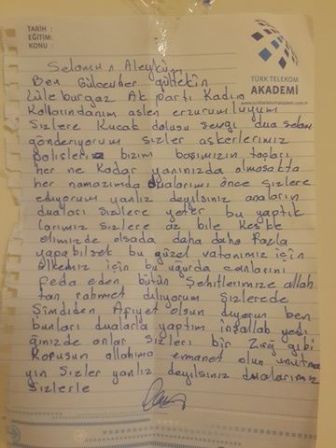 TARİH :
EĞİTİM:
KONU :
TÜRK TELEKOM
AKADEMİ
Selamun Aleyküm
Ben Gülcenber gültekin
Lüleburgaz Ak parti Kadın
Kollarındanım aslen erzurumluyum
Sizlere Kucak dolusu sevgi dua selam
gönderiyorum sizler askerlerimiz
polislerimiz bizim başımızın taçları
her ne kadar yanınızda olmasakta
her namazımda dualarımı önce sizlere
ediyorum yanlız deyilsiniz anaların
duaları sizlere yeter bu yaptık
larımız sizlere az bile keşke
elimizde olsada daha daha fazla
yapabilsek bu güzel vatanımız için
ülkemiz için bu uğurda canlarını
feda eden bütün Şehitlerimize allah
tan rahmet diliyorum sizlerede
Şimdiden Afiyet olsun diyorum ben
bunları dualarla yaptım inşallah yedi
ğinizde onlar sizleri bir Zırğ gibi
Korusun allahıma emanet olun unutma
yın Sizler yanlız deyilsiniz dualarımız
Sizlerle